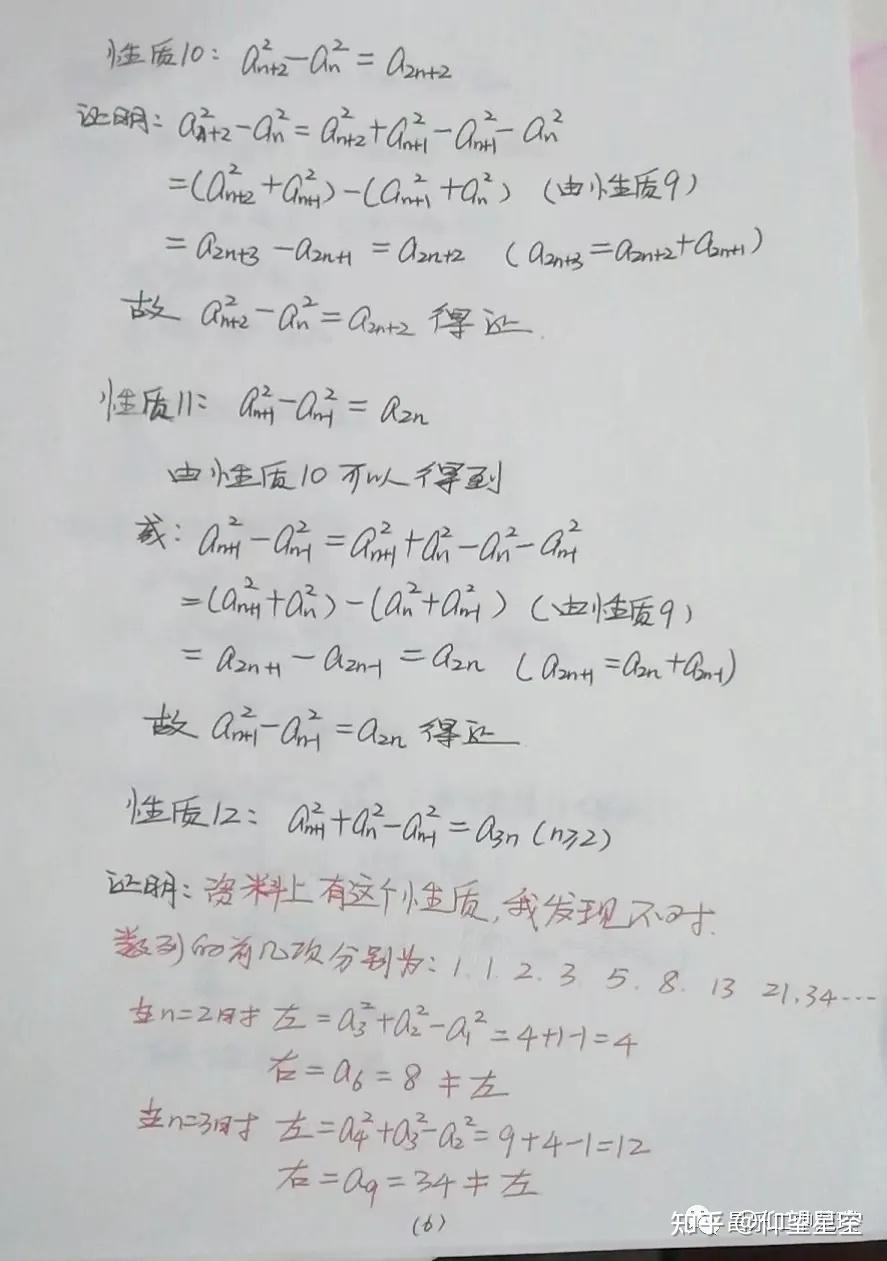 性质10: a²ₙ₊₂-aₙ² = a₂ₙ₊₂
证明: a²ₙ₊₂-aₙ² = a²ₙ₊₂+a²ₙ₊₁-a²ₙ₊₁-aₙ²
=(a²ₙ₊₂+a²ₙ₊₁)-(a²ₙ₊₁+aₙ²) (由性质9)
= a₂ₙ₊₃-a₂ₙ₊₁ = a₂ₙ₊₂ (a₂ₙ₊₃=a₂ₙ₊₂+a₂ₙ₊₁)
故 a²ₙ₊₂-aₙ²=a₂ₙ₊₂ 得证.
性质11: a²ₙ₊₁-a²ₙ₋₁ = a₂ₙ
由性质10可以得到
或: a²ₙ₊₁-a²ₙ₋₁ = a²ₙ₊₁+aₙ²-aₙ²-a²ₙ₋₁
=(a²ₙ₊₁+aₙ²)-(aₙ²+a²ₙ₋₁) (由性质9)
= a₂ₙ₊₁-a₂ₙ₋₁ = a₂ₙ (a₂ₙ₊₁=a₂ₙ+a₂ₙ₋₁)
故 a²ₙ₊₁-a²ₙ₋₁=a₂ₙ 得证
性质12: a²ₙ₊₁+aₙ²-a²ₙ₋₁ = a₃ₙ (n≥2)
证明: 资料上有这个性质,我发现不对.
数列的前几项分别为: 1. 1. 2. 3 5. 8. 13 21. 34 ...
当n=2时 左=a₃²+a₂²-a₁²=4+1-1=4
右=a₆=8≠左
当n=3时 左=a₄²+a₃²-a₂²=9+4-1=12
右=a₉=34≠左
(6)
知乎 @仰望星空